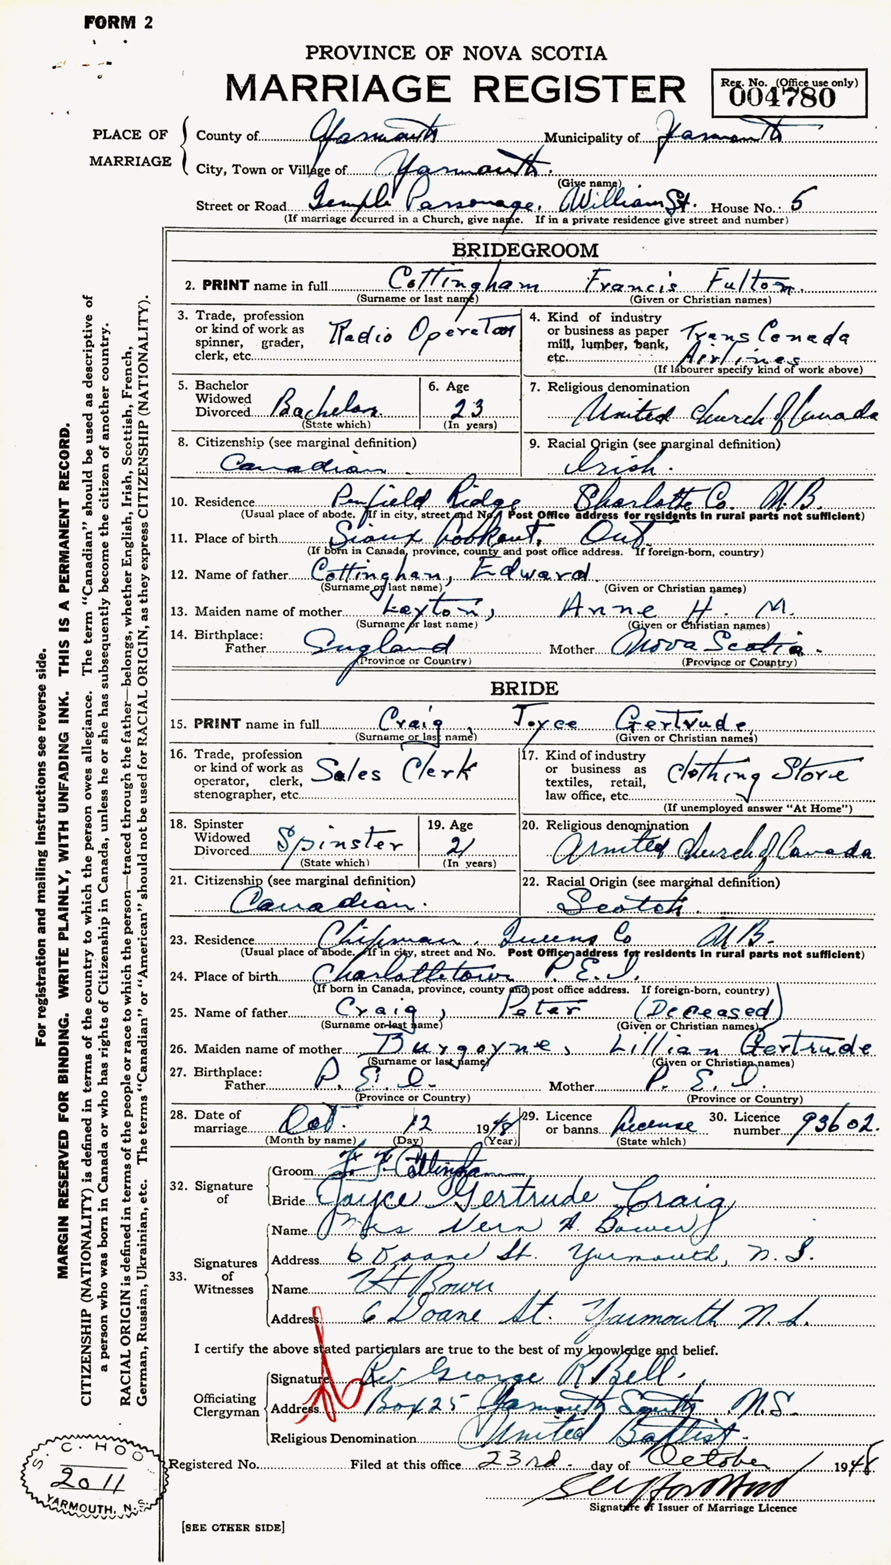 FORM 2
PROVINCE OF NOVA SCOTIA
MARRIAGE REGISTER
Reg. No. (Office use only)
004780
PLACE OF MARRIAGE
County of Yarmouth Municipality of Yarmouth
City, Town or Village of Yarmouth.
(Give name)
Street or Road Temple Parsonage, William St. House No.: 5
(If marriage occurred in a Church, give name. If in a private residence give street and number)
BRIDEGROOM
2. PRINT name in full Cottingham Francis Fulton.
(Surname or last name) (Given or Christian names)
3. Trade, profession or kind of work as spinner, grader, clerk, etc. Radio Operator
4. Kind of industry or business as paper mill, lumber, bank, etc. Trans Canada Airlines
(If labourer specify kind of work above)
5. Bachelor Widowed Divorced Bachelor
(State which)
6. Age 23
(In years)
7. Religious denomination United Church of Canada
8. Citizenship (see marginal definition) Canadian.
9. Racial Origin (see marginal definition) Irish.
10. Residence Penfield Ridge Charlotte Co. N.B.
(Usual place of abode. If in city, street and No. Post Office address for residents in rural parts not sufficient)
11. Place of birth Sioux Lookout, Ont.
(If born in Canada, province, county and post office address. If foreign-born, country)
12. Name of father Cottingham, Edward
(Surname or last name) (Given or Christian names)
13. Maiden name of mother Anne H. M.
(Surname or last name) (Given or Christian names)
14. Birthplace: Father England Mother Nova Scotia.
(Province or Country) (Province or Country)
BRIDE
15. PRINT name in full Craig, Joyce Gertrude
(Surname or last name) (Given or Christian names)
16. Trade, profession or kind of work as operator, clerk, stenographer, etc. Sales Clerk
17. Kind of industry or business as textiles, retail, law office, etc. Clothing Store
(If unemployed answer "At Home")
18. Spinster Widowed Divorced Spinster
(State which)
19. Age 21
(In years)
20. Religious denomination United Church of Canada
21. Citizenship (see marginal definition) Canadian.
22. Racial Origin (see marginal definition) Scotch.
23. Residence Chipman. Queens Co N.B.
(Usual place of abode. If in city, street and No. Post Office address for residents in rural parts not sufficient)
24. Place of birth Charlottetown P.E.I.
(If born in Canada, province, county and post office address. If foreign-born, country)
25. Name of father Craig, Peter (Deceased)
(Surname or last name) (Given or Christian names)
26. Maiden name of mother Burgoyne, Lillian Gertrude
(Surname or last name) (Given or Christian names)
27. Birthplace: Father P.E.I. Mother P.E.I.
(Province or Country) (Province or Country)
28. Date of marriage Oct. 12 1948
(Month by name) (Day) (Year)
29. Licence or banns. License
(State which)
30. Licence number 93602.
32. Signature of
Groom F. F. Cottingham
Bride Joyce Gertrude Craig
33. Signatures of Witnesses
Name Mrs Vern A. Bower
Address 6 Doane St. Yarmouth, N.S.
Name Bower
Address 6 Doane St. Yarmouth N.S.
I certify the above stated particulars are true to the best of my knowledge and belief.
Officiating Clergyman
Signature George R Bell.
Address Box 25 Yarmouth South N.S.
Religious Denomination United Baptist.
Registered No. Filed at this office 23rd. day of October 1948
Signature of Issuer of Marriage Licence
[SEE OTHER SIDE]
For registration and mailing instructions see reverse side.
MARGIN RESERVED FOR BINDING. WRITE PLAINLY, WITH UNFADING INK. THIS IS A PERMANENT RECORD.
CITIZENSHIP (NATIONALITY) is defined in terms of the country to which the person owes allegiance. The term "Canadian" should be used as descriptive of
a person who was born in Canada or who has rights of Citizenship in Canada, unless he or she has subsequently become the citizen of another country.
RACIAL ORIGIN is defined in terms of the people or race to which the person—traced through the father—belongs, whether English, Irish, Scottish, French,
German, Russian, Ukrainian, etc. The terms "Canadian" or "American" should not be used for RACIAL ORIGIN, as they express CITIZENSHIP (NATIONALITY).
S. C. HOO
2011
YARMOUTH, N.S.